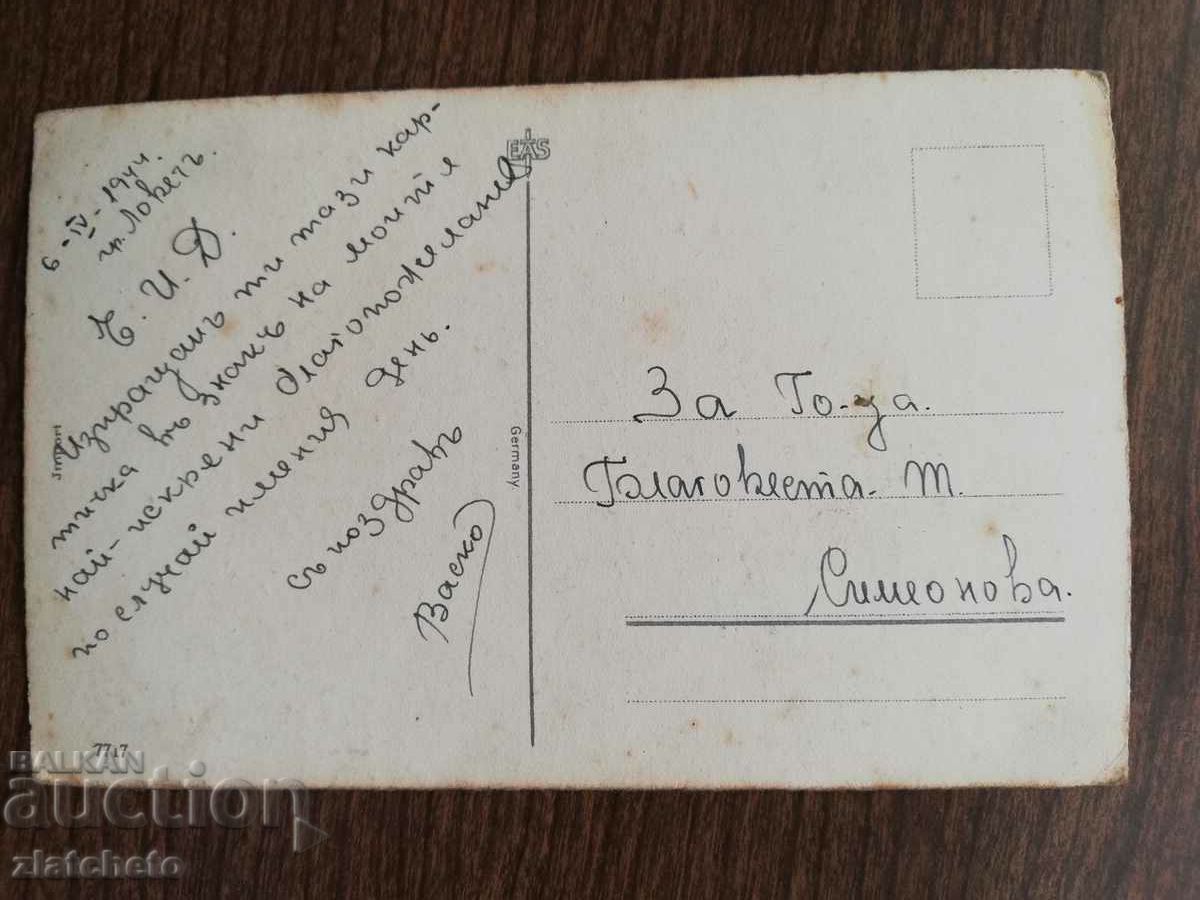 6-IV-1944.
гр. Ловечъ.
Б. И. Д.
Изпращамъ ти тази кар-
тичка въ знакъ на моитѣ
най-искрени благопожелания
по случай имения день.
съ поздравъ
Васко
EAS
Germany
Import
7717
За Го-ца.
Благовѣста. Т.
Симеонова.
БАLKAN
auction
zlatcheto